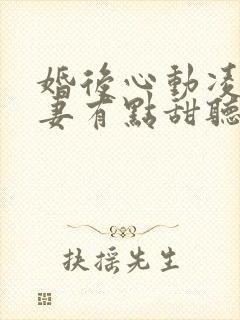 婚後心動凌
妻有點甜聽
扶搖先生